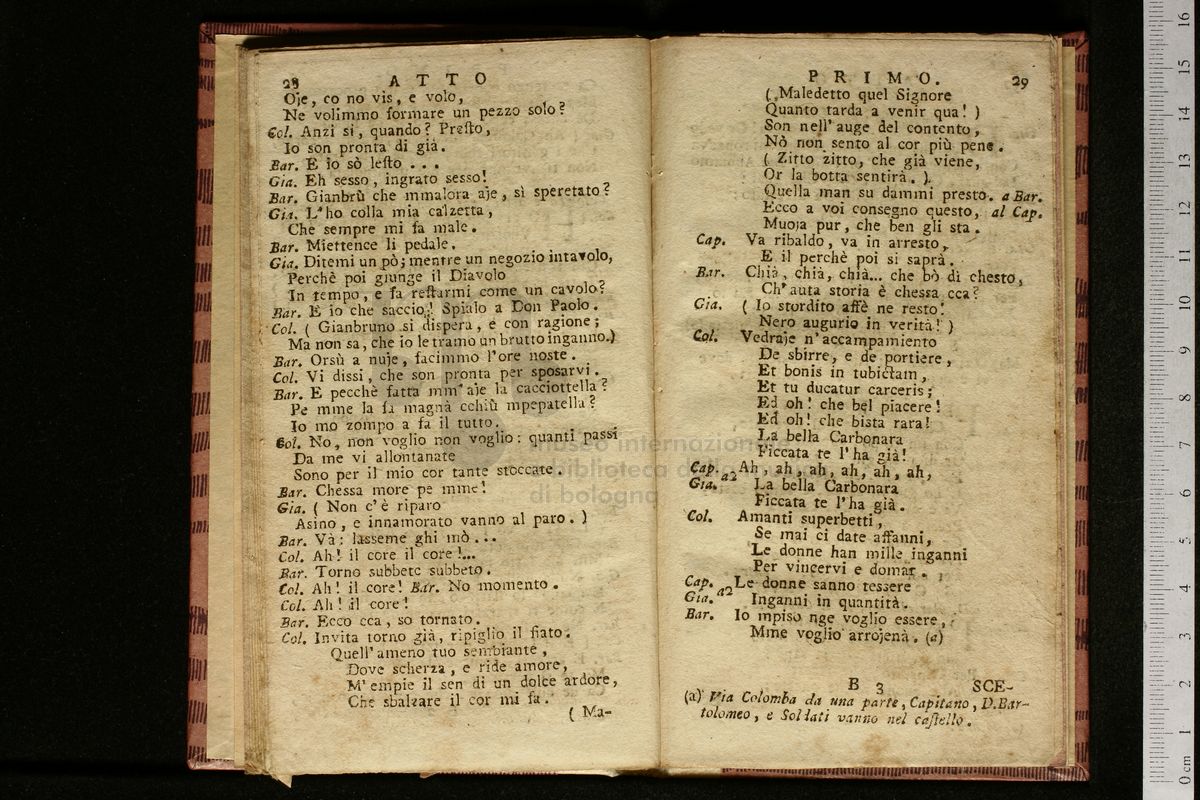 28 ATTO
Oje, co no vis, e volo,
Ne volimmo formare un pezzo solo?
Col. Anzi si, quando? Presto,
Io son pronta di già.
Bar. E io sò lesto ...
Gia. Eh sesso, ingrato sesso!
Bar. Gianbrù che mmalora aje, sì speretato?
Gia. L'ho colla mia calzetta,
Che sempre mi fa male.
Bar. Miettence li pedale.
Gia. Ditemi un pò; mentre un negozio intavolo,
Perchè poi giunge il Diavolo
In tempo, e fa restarmi come un cavolo?
Bar. E io che saccio! Spialo a Don Paolo.
Col. ( Gianbruno si dispera, e con ragione;
Ma non sa, che io le tramo un brutto inganno.)
Bar. Orsù a nuje, facimmo l'ore noste.
Col. Vi dissi, che son pronta per sposarvi.
Bar. E pecchè fatta mm'aje la cacciottella?
Pe mme la fa magnà cchiù mpepatella?
Io mo zompo a fa il tutto.
Col. No, non voglio non voglio: quanti passi
Da me vi allontanate
Sono per il mio cor tante stoccate.
Bar. Chessa more pe mme!
Gia. ( Non c'è riparo
Asino, e innamorato vanno al paro. )
Bar. Và: lasseme ghi mò ...
Col. Ah! il core il core!...
Bar. Torno subbeto subbeto.
Col. Ah! il core! Bar. No momento.
Col. Ah! il core!
Bar. Ecco cca, so tornato.
Col. Invita torno già, ripiglio il fiato.
Quell'ameno tuo sembiante,
Dove scherza, e ride amore,
M'empie il sen di un dolce ardore,
Che sbalzare il cor mi fa.
( Ma-
PRIMO. 29
( Maledetto quel Signore
Quanto tarda a venir qua! )
Son nell'auge del contento,
Nò non sento al cor più pene.
( Zitto zitto, che già viene,
Or la botta sentirà. )
Quella man su dammi presto. a Bar.
Ecco a voi consegno questo, al Cap.
Muoja pur, che ben gli sta.
Cap. Va ribaldo, va in arresto,
E il perchè poi si saprà.
Bar. Chià, chià, chià... che bò dì chesto,
Ch'auta storia è chessa cca?
Gia. ( Io stordito affè ne resto!
Nero augurio in verità! )
Col. Vedraje n'accampamiento
De sbirre, e de portiere,
Et bonis in tubictam,
Et tu ducatur carceris;
Ed oh! che bel piacere!
Ed oh! che bista rara!
La bella Carbonara
Ficcata te l'ha già!
Cap. a2 Ah, ah, ah, ah, ah, ah,
Gia. La bella Carbonara
Ficcata te l'ha già.
Col. Amanti superbetti,
Se mai ci date affanni,
Le donne han mille inganni
Per vincervi e domar.
Cap. a2 Le donne sanno tessere
Gia. Inganni in quantità.
Bar. Io mpiso nge voglio essere,
Mme voglio arrojenà. (a)
B 3 SCE-
(a) Via Colomba da una parte, Capitano, D.Bar-
tolomeo, e Soldati vanno nel castello.
museo internazionale
e biblioteca della
di bologna
16
15
14
13
12
11
10
9
8
7
6
5
4
3
2
1
0 cm